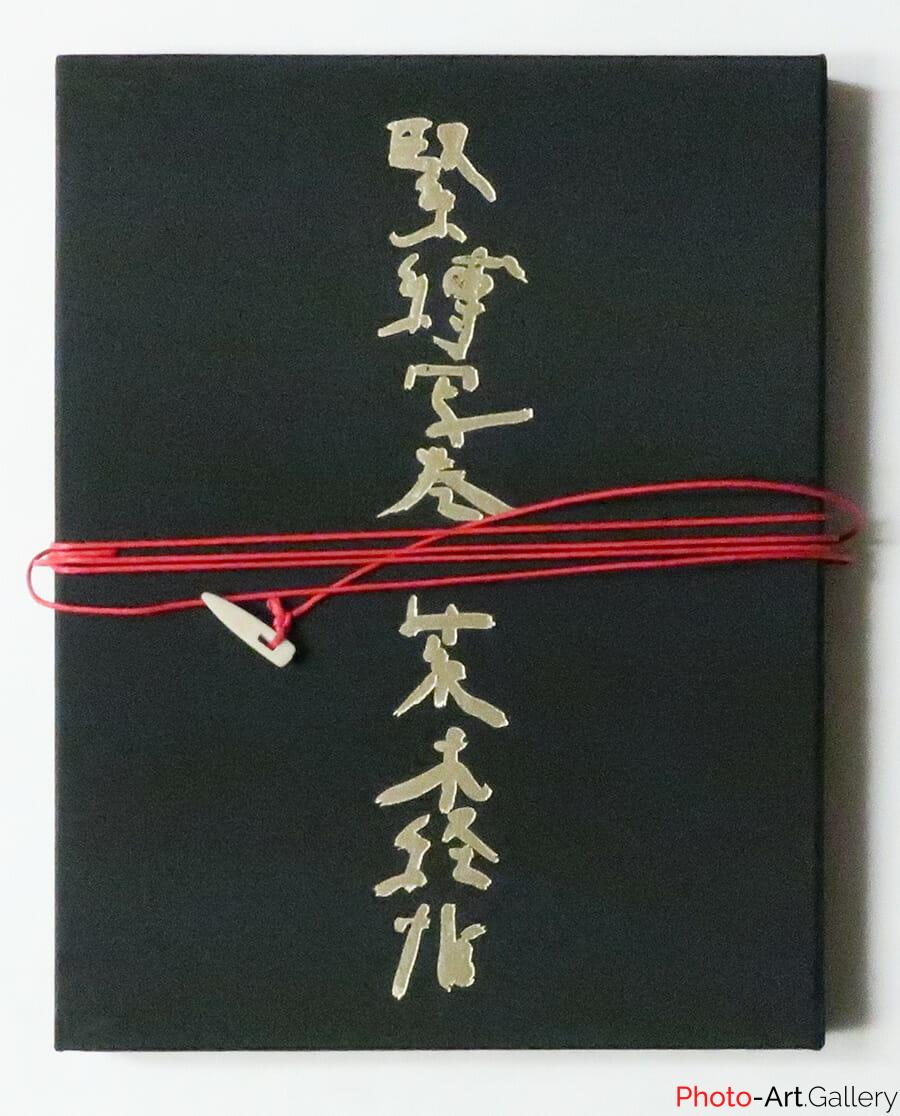 緊縛写巻 荒木経惟
Photo-Art.Gallery